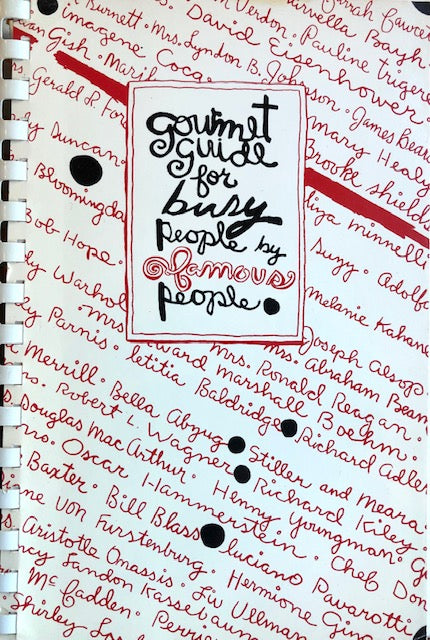 Farrah Fawcett
Burnett · Mrs. Verdon · Marvella Bayh
David Eisenhower · Pauline Trigere
Imogene Coca · Mrs. Lyndon B. Johnson · James Beard
Gish · Mary Healy
Gerald R. Ford · Brooke Shields
Duncan · liza minnelli
Bloomingda · Suzy · Adolfo
Bob Hope · Melanie Kahane
Warhol · Joseph Aesop
Parnis · Mrs. Edward Mrs. Abraham Beam
Merrill · letitia Baldridge Mrs. Ronald Reagan
Robert L. Wagner Bella Abzug Marshall Boehm · Richard Adler
Douglas MacArthur · Stiller and Meara
Mrs. Oscar Hammerstein · Henny Youngman · Richard Kiley
Baxter · Bill Blass · Chef Don
von Furstenburg · luciano Pavarotti
Mrs. Aristotle Onassis · Liv Ullman · Hermione
Landon Kassebaum
McFadden ·
Shirley
gourmet
guide
for
busy
people by
famous
people